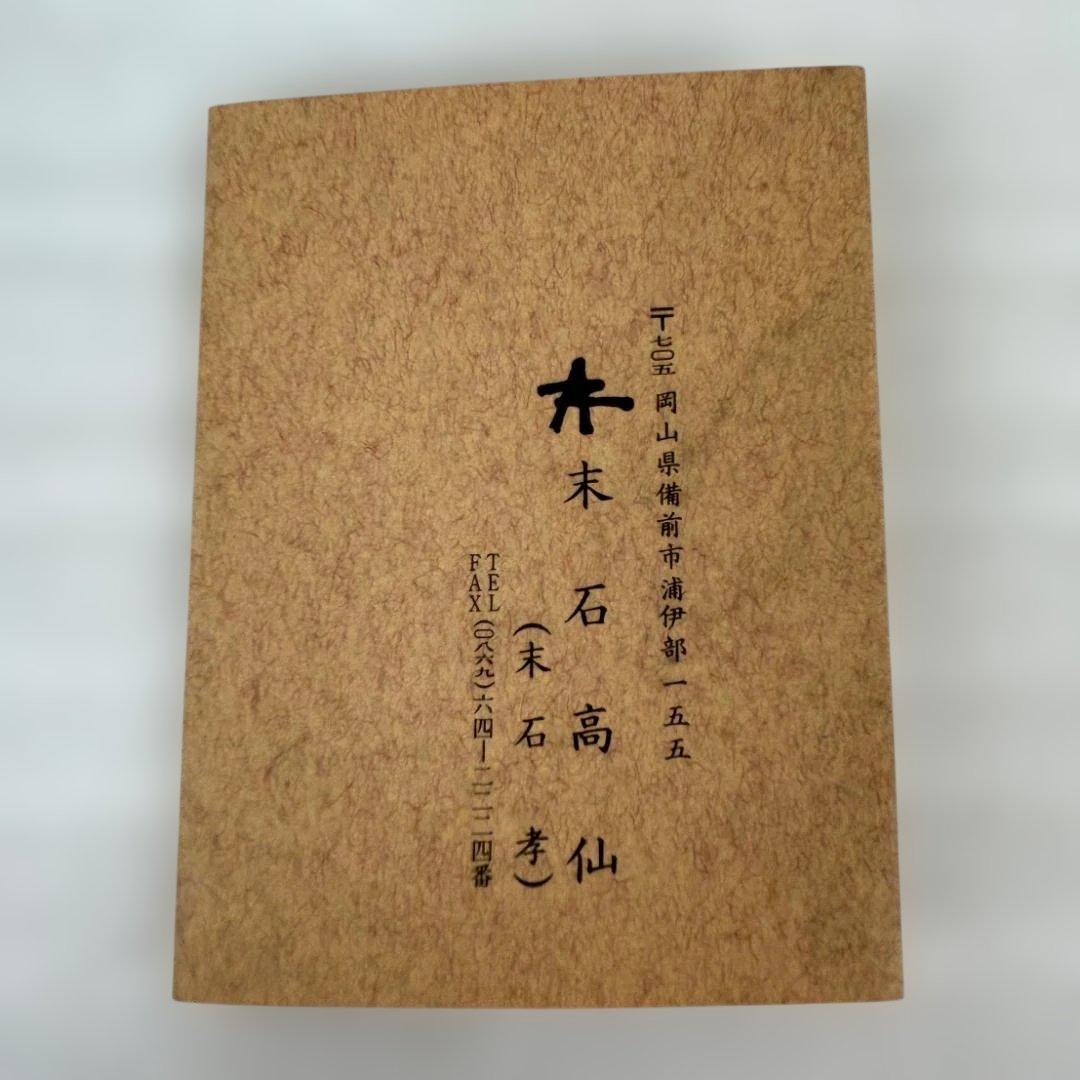 〒七〇五 岡山県備前市浦伊部一五五
末石高仙
(末石 孝)
TEL
FAX (〇八六九)六四ー二二二四番